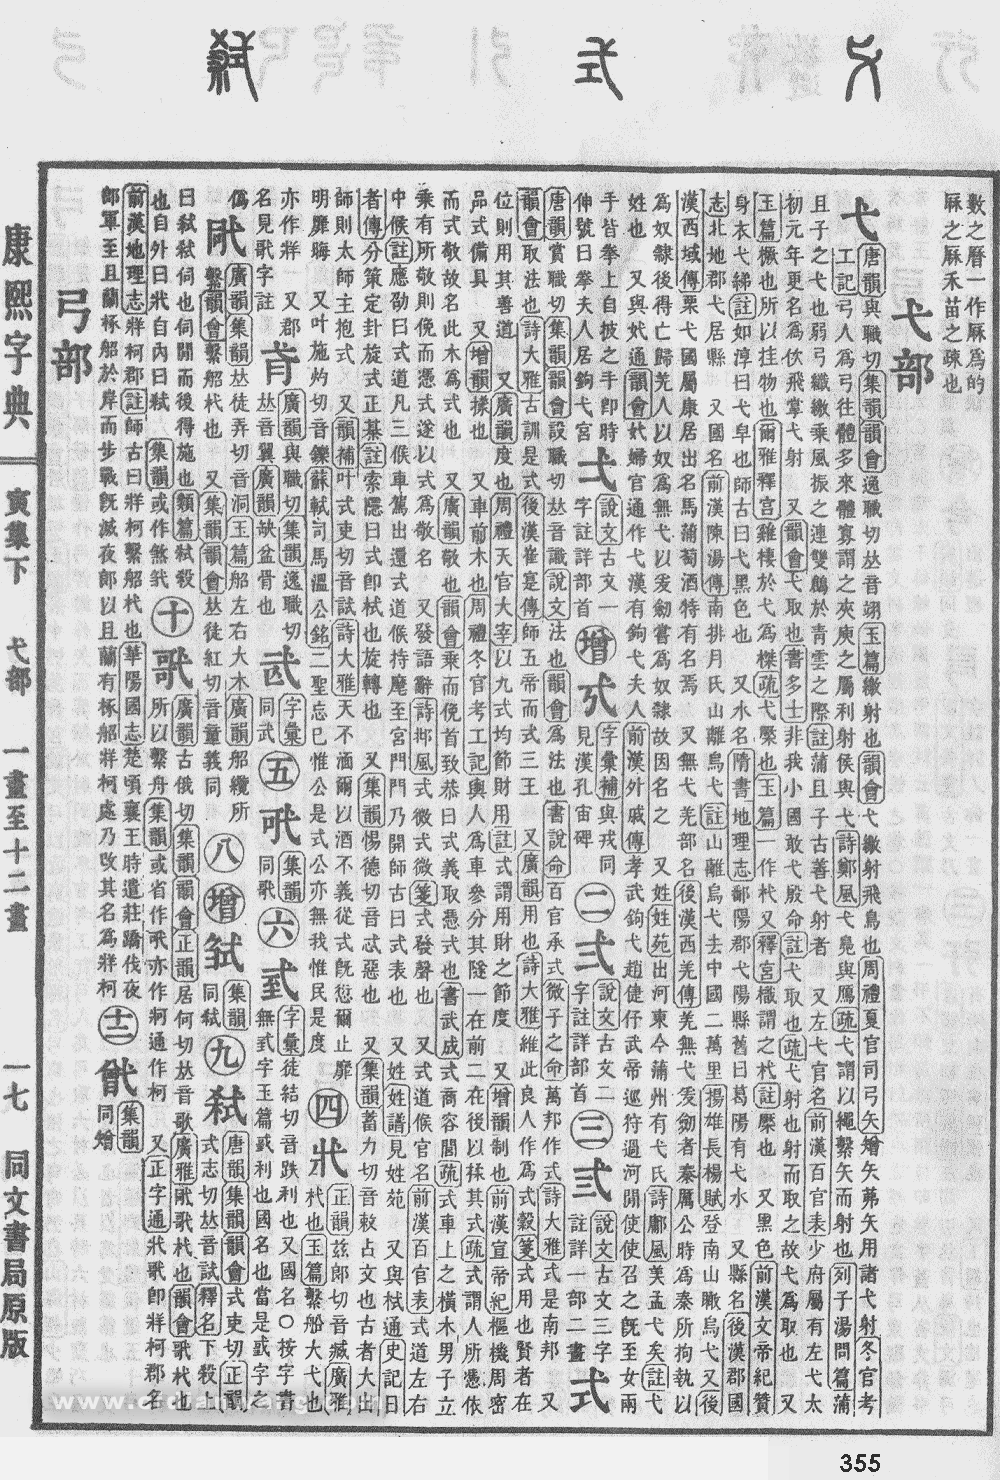 弑 式 弋
數之曆一作厤爲的
厤之厤禾苗之疎也
弋部
弋
唐韻與職切集韻韻會逸職切𠀤音翊玉篇繳射也韻會弋繳射飛鳥也周禮夏官司弓矢矰矢茀矢用諸弋射冬官考
工記弓人爲弓往體多來體寡謂之夾庾之屬利射侯與弋詩鄭風弋鳧與鴈疏弋謂以繩繫矢而射也列子湯問篇蒲
且子之弋也弱弓纖繳乘風振之連雙鶬於靑雲之際註蒲且子古善弋射者 又左弋官名前漢百官表少府屬有左弋太
初元年更名爲佽飛掌弋射 又韻會弋取也書多士非我小國敢弋殷命註弋取也疏弋射也射而取之故弋爲取也 又
玉篇橛也所以挂物也爾雅釋宮雞棲於弋爲榤疏弋橜也玉篇一作杙又釋宮樴謂之杙註橜也 又黑色前漢文帝紀贊
身衣弋綈註如淳曰弋皁也師古曰弋黑色也 又水名隋書地理志鄱陽郡弋陽縣舊曰葛陽有弋水 又縣名後漢郡國
志北地郡弋居縣 又國名前漢陳湯傳南排月氏山離烏弋註山離烏弋去中國二萬里揚雄長楊賦登南山瞰烏弋又後
漢西域傳栗弋國屬康居出名馬蒲萄酒特有名焉 又無弋羌部名後漢西羌傳羌無弋爰劒者秦厲公時爲秦所拘執以
爲奴隸後得亡歸羌人以奴爲無弋以爰劒嘗爲奴隸故因名之 又姓姓苑出河東今蒲州有弋氏詩鄘風美孟弋矣註弋
姓也 又與妷通韻會妷婦官通作弋漢有鉤弋夫人前漢外戚傳孝武鉤弋趙倢伃武帝巡狩過河閒使使召之旣至女兩
手皆拳上自披之手卽時
伸號曰拳夫人居鉤弋宮
弌 說文古文一
字註詳部首
增 㐅 字彙補與戎同
見漢孔宙碑
二 弍 說文古文二
字註詳部首
三 弎 說文古文三字
註詳一部二畫
式
唐韻賞職切集韻韻會設職切𠀤音識說文法也韻會爲法也書說命百官承式微子之命萬邦作式詩大雅式是南邦 又
韻會取法也詩大雅古訓是式後漢崔寔傳師五帝而式三王 又廣韻用也詩大雅維此良人作爲式穀箋式用也賢者在
位則用其善道 又廣韻度也周禮天官大宰以九式均節財用註式謂用財之節度 又增韻制也前漢宣帝紀樞機周密
品式備具 又增韻㨾也 又車前木也周禮冬官考工記輿人爲車參分其隧一在前二在後以揉其式疏式謂人所憑依
而式敬故名此木爲式也 又廣韻敬也韻會乘而俛首致恭曰式義取憑式也書武成式商容閭疏式車上之橫木男子立
乘有所敬則俯而憑式遂以式爲敬名 又發語辭詩邶風式微式微箋式發聲也 又式道候官名前漢百官表式道左右
中候註應劭曰式道凡三候車駕出還式道候持麾至宮門門乃開師古曰式表也 又姓姓譜見姓苑 又與栻通史記日
者傳分策定卦旋式正棊註索隱曰式卽栻也旋轉也 又集韻惕德切音忒惡也 又集韻蓄力切音敕占文也古者大出
師則太師主抱式 又韻補叶式吏切音試詩大雅天不湎爾以酒不義從式旣愆爾止靡
明靡晦 又叶施灼切音鑠蘇軾司馬溫公銘二聖忘已惟公是式公亦無我惟民是度
四 𢍺 正韻茲郎切音臧廣雅
杙也玉篇繫船大弋也
亦作牂一 又郡
名見㰤字註
廣韻與職切集韻逸職切
𠀤音翼廣韻缺盆骨也
字彙
同武
五 集韻
同㰤
六 字彙徒結切音跌利也又國名○按字書
無字玉篇或利也國名也當是或字之
譌
廣韻集韻𠀤徒弄切音洞玉篇船左右大木廣韻船纜所
繫韻會繫船杙也 又集韻韻會𠀤徒紅切音童義同
八 增 集韻
同弑
九 弑
唐韻集韻韻會式吏切正韻
式志切𠀤音試釋名下殺上
曰弑弑伺也伺閒而後得施也類篇弑殺
也自外曰戕自內曰弑 集韻或作煞弒
十 㰤 廣韻古俄切集韻韻會正韻居何切𠀤音歌廣雅㰤杙也韻會㰤杙也
所以繫舟集韻或省作亦作牁通作柯 又正字通㰤卽牂柯郡名
前漢地理志牂柯郡註師古曰牂柯繫船杙也華陽國志楚頃襄王時遣莊蹻伐夜
郞軍至且蘭椓船於岸而步戰旣滅夜郞以且蘭有椓船牂柯處乃攺其名爲牂柯
十二 集韻
同矰
弓部
康熙字典 寅集下 弋部 一畫至十二畫 一七 同文書局原版
355